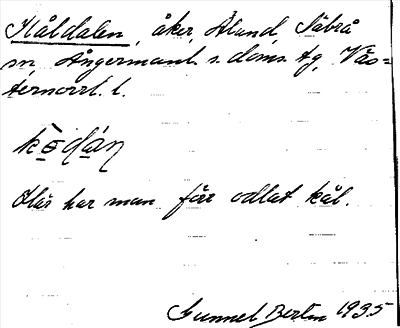 Kåldalen, åker, Åland, Säbrå
sn, Ångermanl. s. doms. tg, Väs=
ternorrl. l.
Här har man förr odlat kål.
Gunnel Berlin 1935